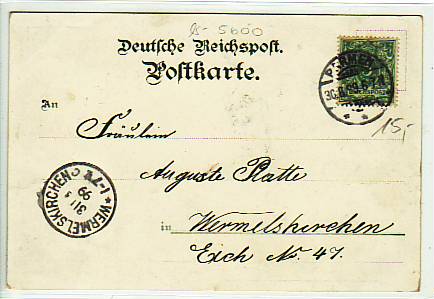 5600
Deutsche Reichspost.
Postkarte.
BARMEN
An
15,-
Fräulein
Auguste Platte
in Wermelskirchen
Eich No. 47.
WERMELSKIRCHEN
31/ 99